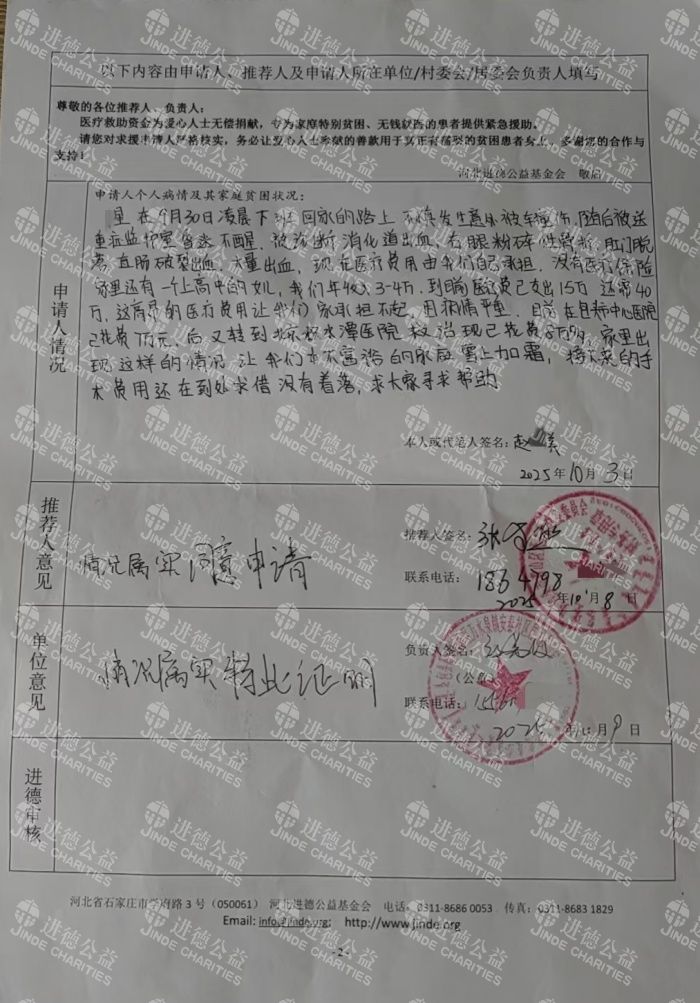 以下内容由申请人、推荐人及申请人所在单位/村委会/居委会负责人填写
尊敬的各位推荐人、负责人：
医疗救助资金为爱心人士无偿捐献，专为家庭特别贫困、无钱就医的患者提供紧急援助。
请您对求援申请人严格核实，务必让爱心人士奉献的善款用于真正有需要的贫困患者身上，多谢您的合作与
支持！
河北进德公益基金会 敬启
申请人情况
申请人个人病情及其家庭贫困状况：
里 在9月30日凌晨下班回家的路上 不幸发生意外被车撞伤，随后被送
重症监护室 昏迷不醒，被诊断消化道出血，右眼粉碎性骨折，肛门脱
落，直肠破裂出血，大量出血，现在医疗费用由我们自己承担，没有医疗保险
家里还有一个上高中的女儿，我们年收入3-4万，到期医疗费已支出15万 还需40
万，这高昂的医疗费用让我们家承担不起，因病情严重，目前在包头中心医院
已花费7万元，后又转到北京积水潭医院 救治现已花费8万多，家里出
现这样的情况 让我们本不富裕的家庭 雪上加霜，接下来的手
术费用还在到处求借 没有着落，求大家寻求帮助
本人或代笔人签名：赵
2025年10月3日
推荐人意见
情况属实 同意申请
推荐人签名：张
联系电话：1864798
2025年10月8日
单位意见
情况属实 特此证明
负责人签名：
（公章）
联系电话：
2025年11月9日
进德审核
河北省石家庄市学府路3号（050061） 河北进德公益基金会 电话：0311-8686 0053 传真：0311-8683 1829
Email: info@jinde.org; http://www.jinde.org
-2-
进德公益
JINDE CHARITIES